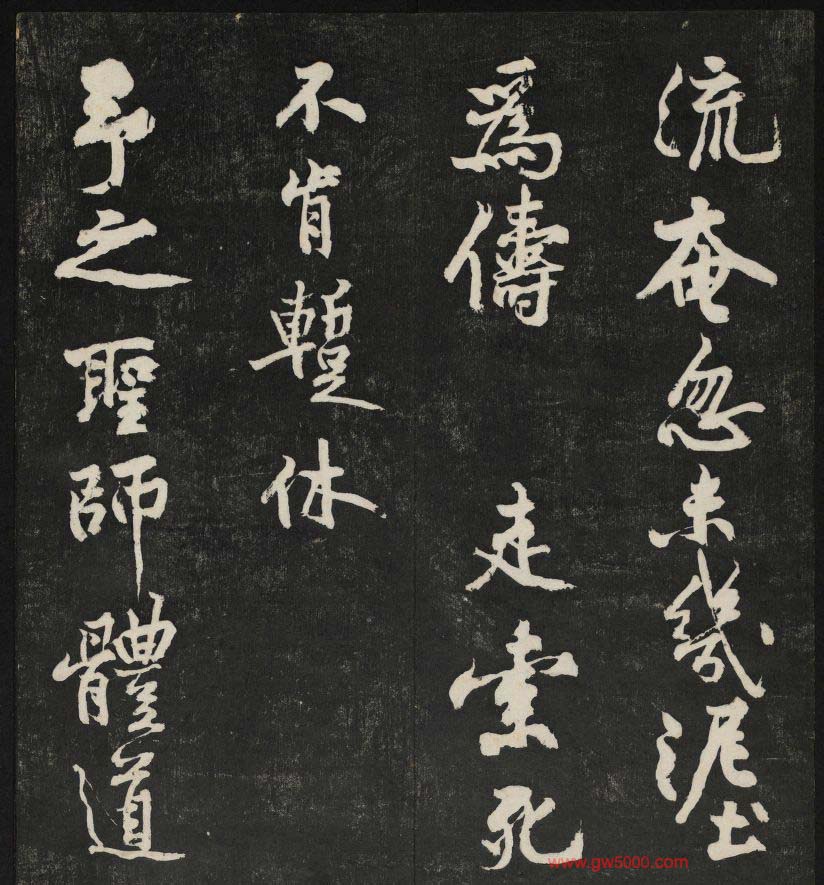 流奄忽未幾泥土
為儔　走索死
不肯蹔休
予之聖師體道
www.gw5000.com